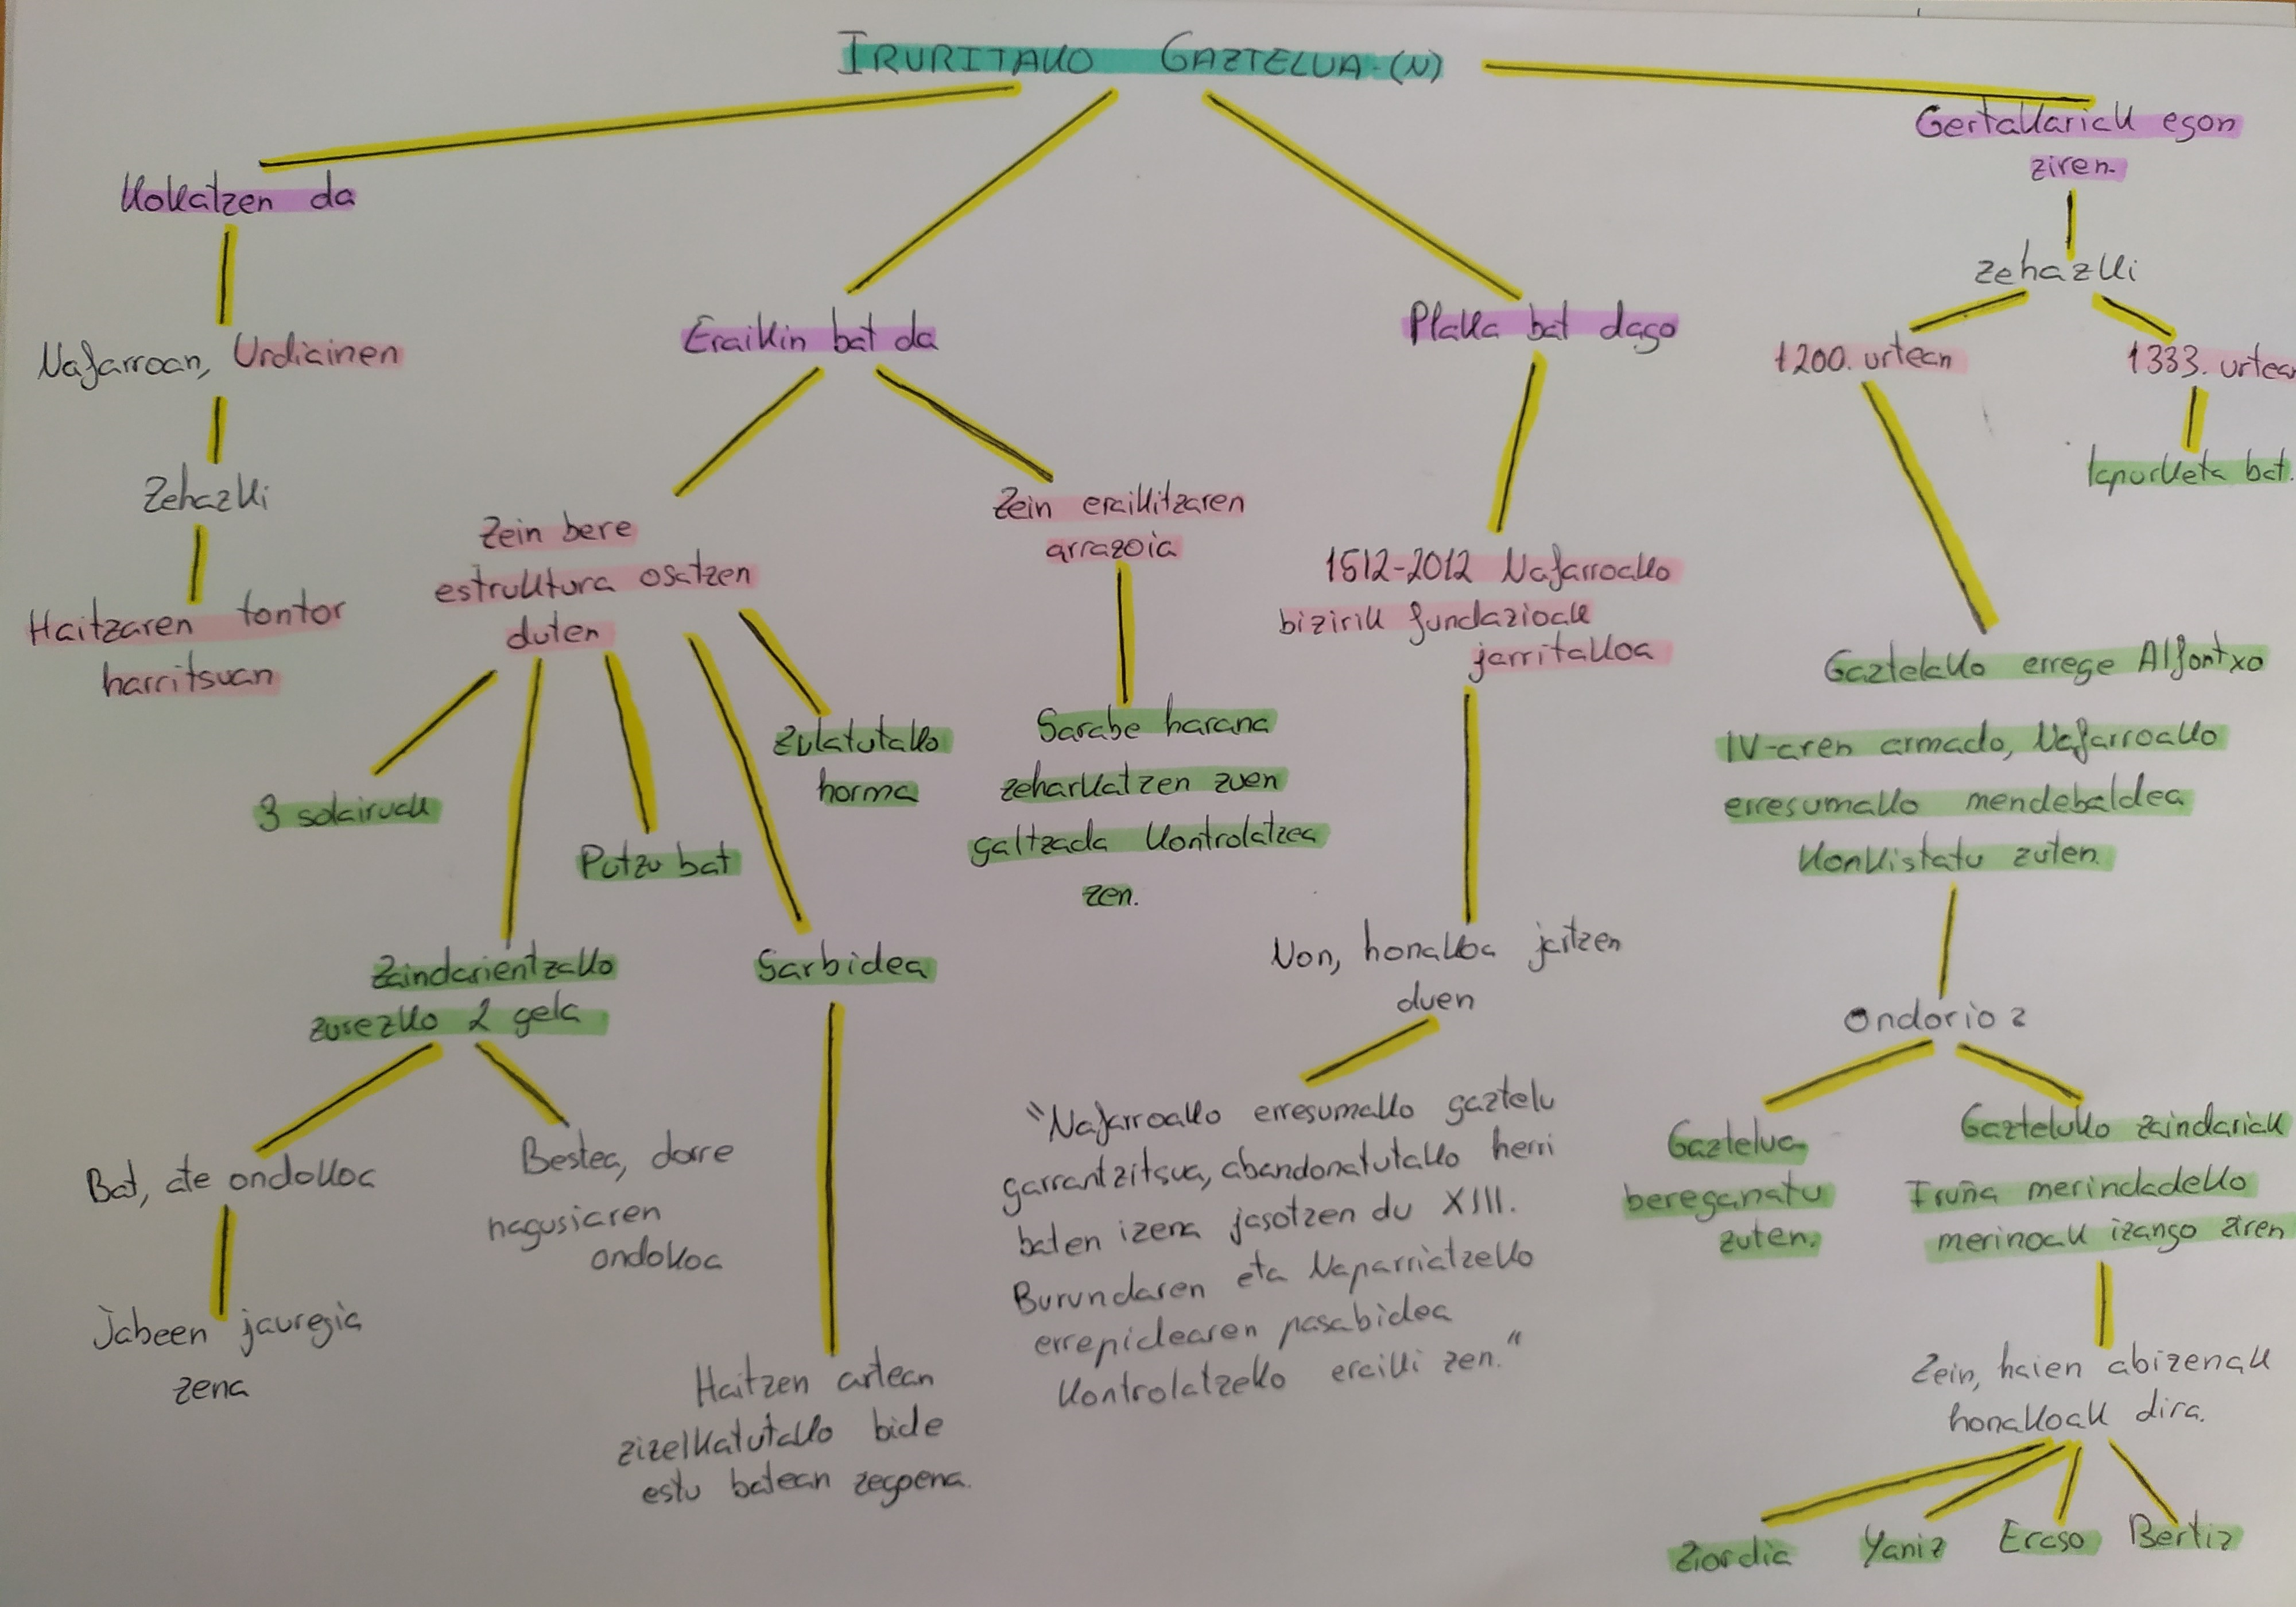 IRURITAKO GAZTELUA-(N)
Kokatzen da
Nafarroan, Urdiainen
Zehazki
Haitzaren tontor
harritsuan
Eraikin bat da
Zein bere
estruktura osatzen
duten
3 solairuak
Zaindarientzako
zurezko 2 gela
Bat, ate ondokoa
Jabeen jauregia
zena
Bestea, dorre
nagusiaren
ondokoa
Putzu bat
Sarbidea
Haitzen artean
zizelkatutako bide
estu batean zegoena.
Zulatutako
horma
Zein eraikitzaren
arrazoia
Sarabe harana
zeharkatzen zuen
galtzada kontrolatzea
zen.
Plaka bat dago
1512-2012 Nafarroako
bizirik fundazioak
jarritakoa
Non, honakoa jartzen
duen
"Nafarroako erresumako gaztelu
garrantzitsua, abandonatutako herri
baten izena jasotzen du XIII.
Burundaren eta Naparriatzeko
errepidearen pasabidea
kontrolatzeko eraiki zen."
Gertakariak egon
ziren.
Zehazki
1200. urtean
Gaztelako errege Alfontxo
IV-aren armado, Nafarroako
erresumako mendebaldea
konkistatu zuten.
Ondorioz
Gaztelua
bereganatu
zuten.
Gazteluko zaindariak
Iruña merindadeko
merinoak izango ziren
Zein, haien abizenak
honakoak dira.
Ziordia Yaniz Eraso Bertiz
1333. urtea
lapurketa bat.